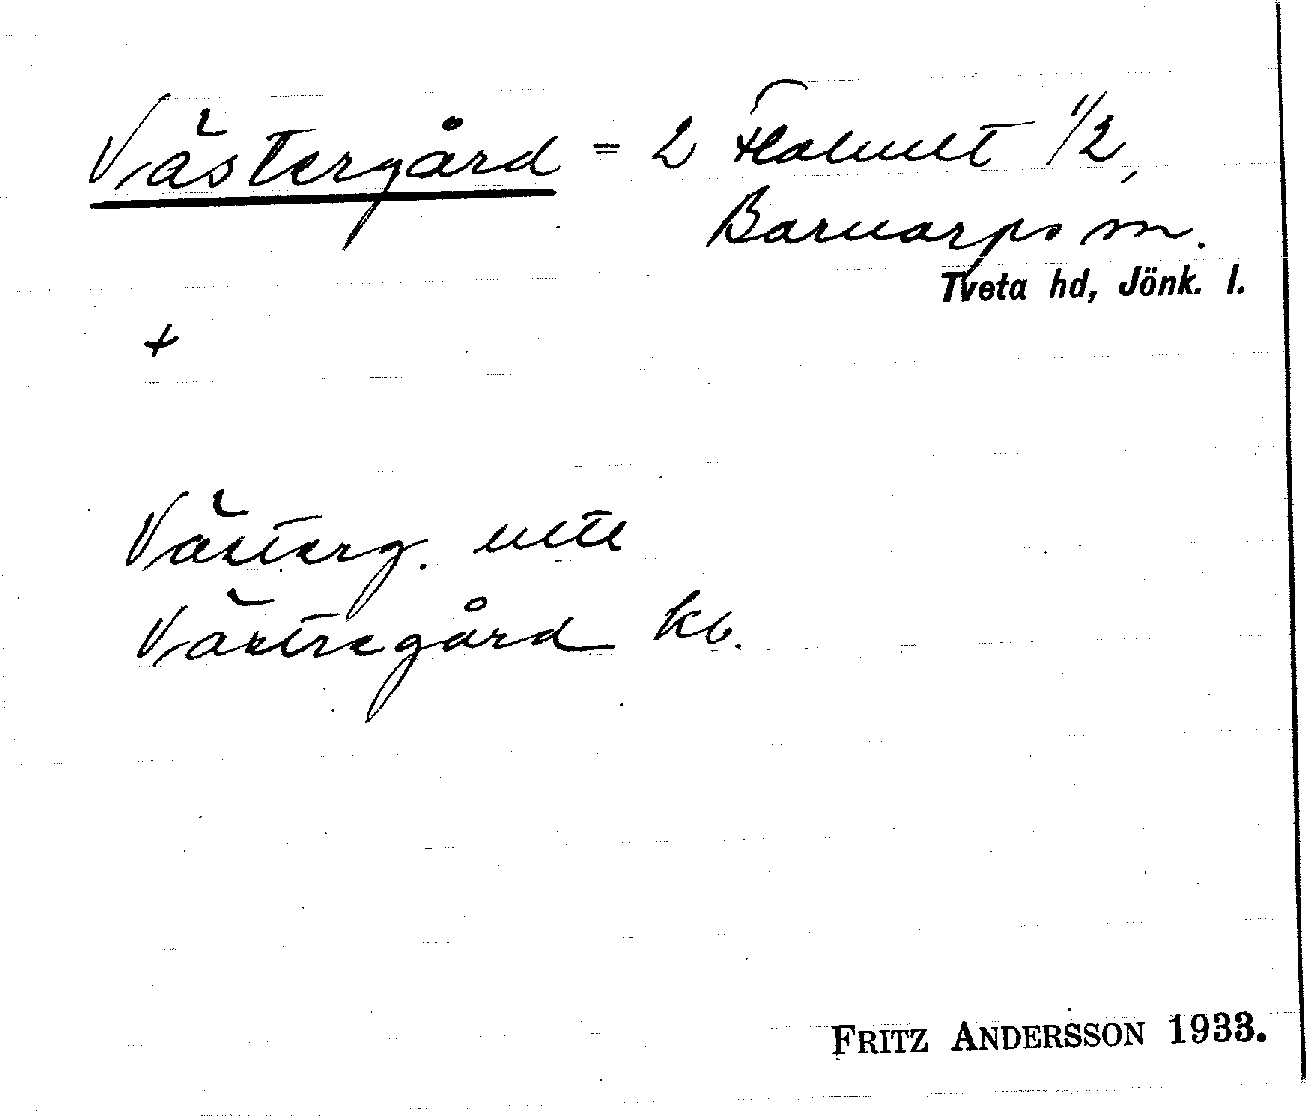 Västergård = 2 Holmet 1/2,
Barnarps sn.
Tveta hd, Jönk. l.
+
Västerg.
Västregård kb.
FRITZ ANDERSSON 1933.